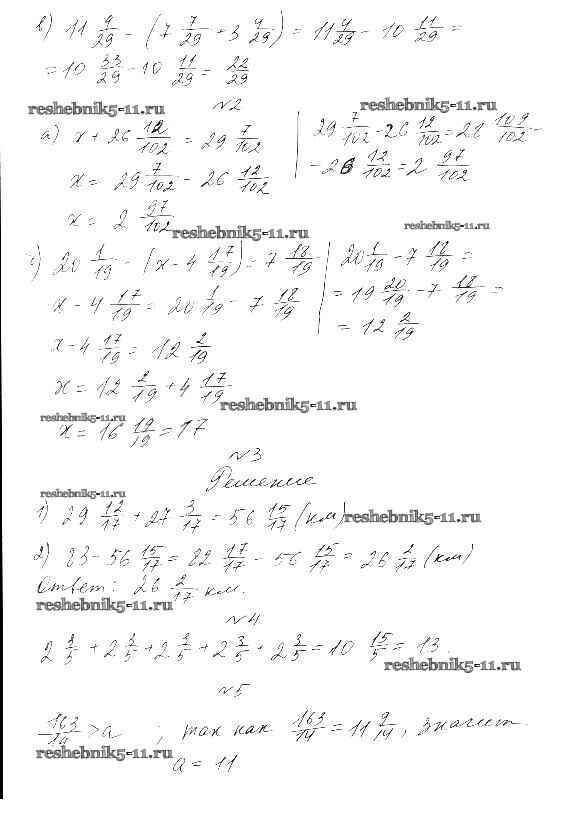 в) 11 4/29 - (7 7/29 + 3 4/29) = 11 4/29 - 10 11/29 =
= 10 33/29 - 10 11/29 = 22/29
reshebnik5-11.ru
№2
reshebnik5-11.ru
а) x + 26 12/102 = 29 7/102 | 29 7/102 - 26 12/102 = 28 109/102 -
x = 29 7/102 - 26 12/102 | - 26 12/102 = 2 97/102
x = 2 97/102
reshebnik5-11.ru
reshebnik5-11.ru
20 1/19 - (x - 4 17/19) = 7 18/19 | 20 1/19 - 7 18/19 =
x - 4 17/19 = 20 1/19 - 7 18/19 | = 19 20/19 - 7 18/19 =
x - 4 17/19 = 12 2/19 | = 12 2/19
x = 12 2/19 + 4 17/19
reshebnik5-11.ru
reshebnik5-11.ru
x = 16 19/19 = 17
№3
Решение
reshebnik5-11.ru
1) 29 12/17 + 27 3/17 = 56 15/17 (км)
reshebnik5-11.ru
2) 83 - 56 15/17 = 82 17/17 - 56 15/17 = 26 2/17 (км)
Ответ: 26 2/17 км.
reshebnik5-11.ru
№4
2 3/5 + 2 3/5 + 2 3/5 + 2 3/5 + 2 3/5 = 10 15/5 = 13.
reshebnik5-11.ru
№5
163/14 > a ; так как 163/14 = 11 9/14, значит
reshebnik5-11.ru
a = 11